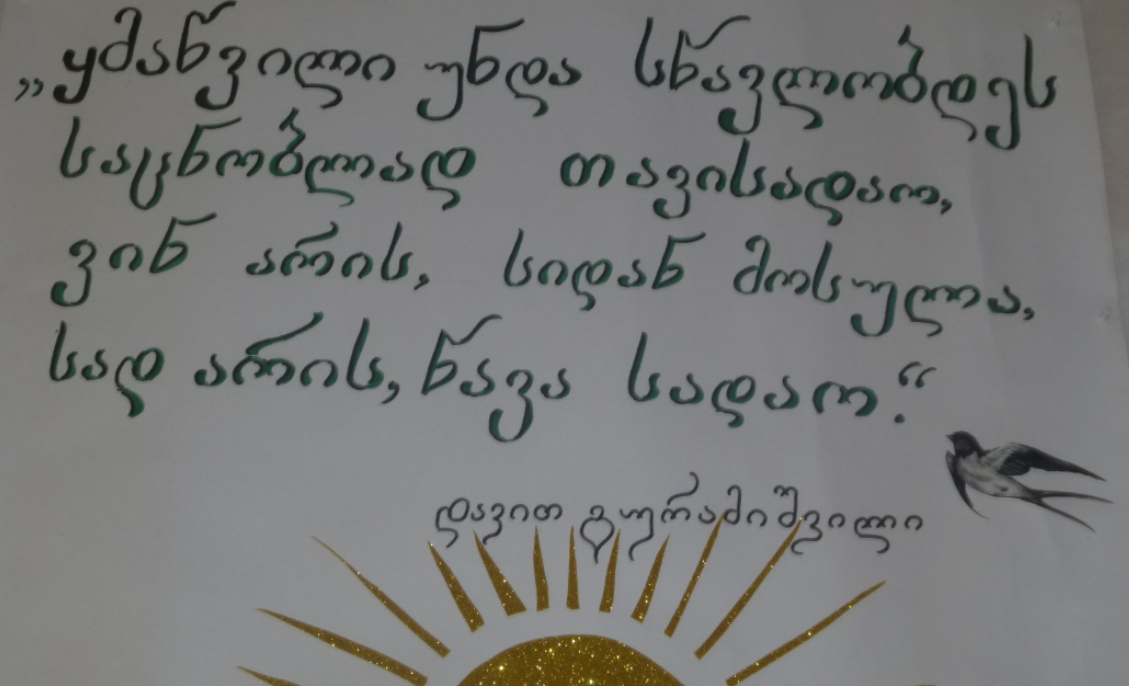 „ყმაწვილი უნდა სწავლობდეს
საცნობლად თავისადაო,
ვინ არის, სიდან მოსულა,
სად არის, წავა სადაო.“
დავით გურამიშვილი